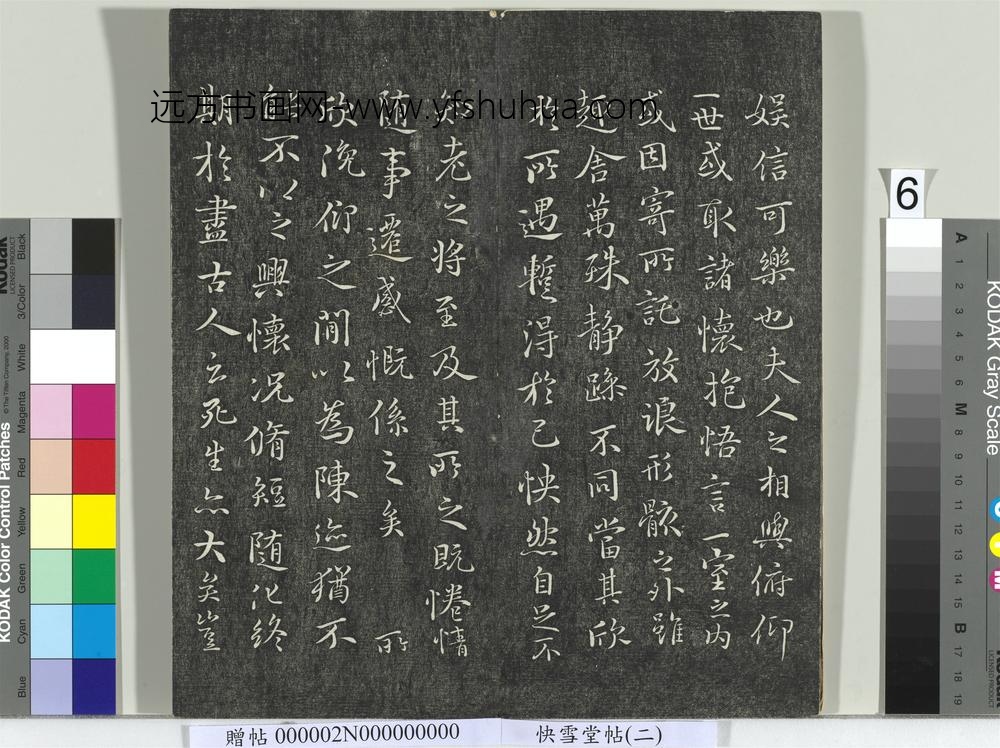 娯信可樂也夫人之相與俯仰
一世或取諸懷抱悟言一室之内
或因寄所託放浪形骸之外雖
趣舍萬殊静躁不同當其欣
於所遇蹔得於己怏然自足不
知老之將至及其所之既惓情
随事遷感慨係之矣 所
欣俛仰之閒以為陳迹猶不
能不以之興懷况脩短随化終
期於盡古人云死生亦大矣豈
远方书画网-www.yfshuhua.com
6
贈帖 000002N000000000
快雪堂帖(二)
KODAK Color Control Patches
© The Tiffen Company, 2000
Kodak
LICENSED PRODUCT
Black
3/Color
White
Magenta
Red
Yellow
Green
Cyan
Blue
KODAK Gray Scale
A 1 2 3 4 5 6 M 8 9 10 11 12 13 14 15 B 17 18 19